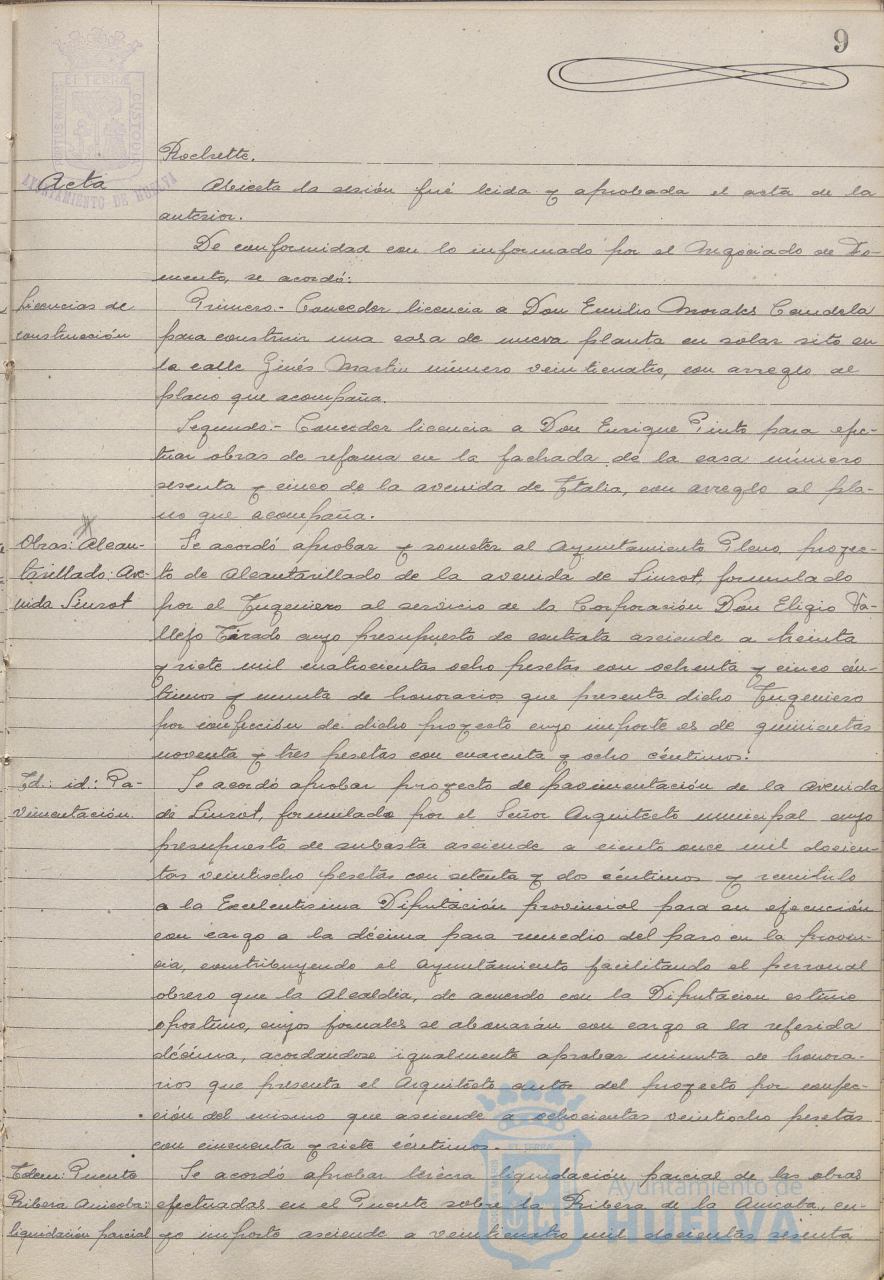 9
PORTUS MARIS ET TERRÆ CUSTODIA
AYUNTAMIENTO DE HUELVA
Rochette.
Acta
Abierta la sesión fué leida y aprobada el acta de la
anterior.
De conformidad con lo informado por el Negociado de Fo-
mento, se acordó:
Licencias de
construcción
Primero.- Conceder licencia a Don Emilio Morales Candela
para construir una casa de nueva planta en solar sito en
la calle Ginés Martin número veinticuatro, con arreglo al
plano que acompaña.
Segundo.- Conceder licencia a Don Enrique Pinto para efec-
tuar obras de reforma en la fachada de la casa número
sesenta y cinco de la avenida de Italia, con arreglo al pla-
no que acompaña.
Obras: Alcan-
tarillado: Ave-
nida Siurot
Se acordó aprobar y someter al Ayuntamiento Pleno, proyec-
to de Alcantarillado de la avenida de Siurot, formulado
por el Ingeniero al servicio de la Corporación Don Eligio Va-
llejo Tirado cuyo presupuesto de contrata asciende a treinta
y siete mil cuatrocientas ocho pesetas con ochenta y cinco cén-
timos y minuta de honorarios que presenta dicho Ingeniero
por confección de dicho proyecto cuyo importe es de quinientas
noventa y tres pesetas con cuarenta y ocho céntimos.
Id.: id.: Pa-
vimentación.
Se acordó aprobar proyecto de pavimentación de la Avenida
de Siurot, formulado por el Señor Arquitecto municipal cuyo
presupuesto de subasta asciende a ciento once mil doscien-
tas veintiocho pesetas con setenta y dos céntimos y remitirlo
a la Excelentisima Diputación provincial para su ejecución
con cargo a la décima para remedio del paro en la provin-
cia, contribuyendo el Ayuntamiento facilitando el personal
obrero que la Alcaldia, de acuerdo con la Diputacion estime
oportuno, cuyos jornales se abonarán con cargo a la referida
décima, acordandose igualmente aprobar minuta de honora-
rios que presenta el Arquitecto autor del proyecto por confec-
ción del mismo que asciende a ochocientas veintiocho pesetas
con cincuenta y siete céntimos.-
Idem: Puente
Ribera Anicoba:
liquidación parcial
Se acordó aprobar tercera liquidación parcial de las obras
efectuadas en el Puente sobre la Ribera de la Anicoba, cu-
yo importe asciende a veinticuatro mil doscientas sesenta
Ayuntamiento de
HUELVA